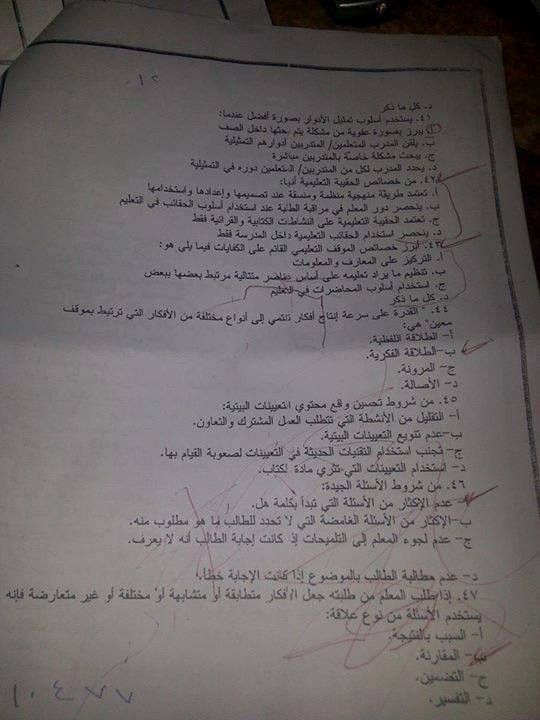 ١٠
د. كل ما ذكر
٤١. يستخدم أسلوب تمثيل الأدوار بصورة أفضل عندما:
أ. يبرز بصورة عفوية من مشكلة يتم بحثها داخل الصف
ب. يلقن المدرب المتعلمين/ المتدربين أدوارهم التمثيلية
ج. يبحث مشكلة خاصة بالمتدربين مباشرة
د. يحدد المدرب لكل من المتدربين/ المتعلمين دوره في التمثيلية
٤٢. من خصائص الحقيبة التعليمية أنها:
أ. تعتمد طريقة منهجية منظمة ومنسقة عند تصميمها وإعدادها واستخدامها
ب. ينحصر دور المعلم في مراقبة الطلبة عند استخدام أسلوب الحقائب في التعليم
ج. تعتمد الحقيبة التعليمية على النشاطات الكتابية والقرائية فقط
د. ينحصر استخدام الحقائب التعليمية داخل المدرسة فقط
٤٣. أبرز خصائص الموقف التعليمي القائم على الكفايات فيما يلي هو:
أ. التركيز على المعارف والمعلومات
ب. تنظيم ما يراد تعليمه على أساس عناصر متتالية مرتبط بعضها ببعض
ج. استخدام أسلوب المحاضرات في التعليم
د. كل ما ذكر
٤٤. " القدرة على سرعة إنتاج أفكار تنتمي إلى أنواع مختلفة من الأفكار التي ترتبط بموقف
معين" هي:
أ- الطلاقة اللفظية.
ب-الطلاقة الفكرية.
ج- المرونة.
د- الأصالة.
٤٥. من شروط تحسين واقع محتوي التعيينات البيتية:
أ- التقليل من الأنشطة التي تتطلب العمل المشترك والتعاون.
ب-عدم تنويع التعيينات البيتية.
ج- تجنب استخدام التقنيات الحديثة في التعيينات لصعوبة القيام بها.
د- استخدام التعيينات التي-تثري مادة الكتاب.
٤٦. من شروط الأسئلة الجيدة:
أ- عدم الإكثار من الأسئلة التي تبدأ بكلمة هل.
ب-الإكثار من الأسئلة الغامضة التي لا تحدد للطالب ما هو مطلوب منه.
ج- عدم لجوء المعلم إلى التلميحات إذ كانت إجابة الطالب أنه لا يعرف.
د- عدم مطالبة الطالب بالموضوع إذا كانت الإجابة خطأ.
٤٧. إذا طلب المعلم من طلبته جعل الأفكار متطابقة أو متشابهة أو مختلفة أو غير متعارضة فإنه
يستخدم الأسئلة من نوع علاقة:
أ- السبب بالنتيجة.
ب- المقارنة.
ج- التضمين.
د- التفسير.